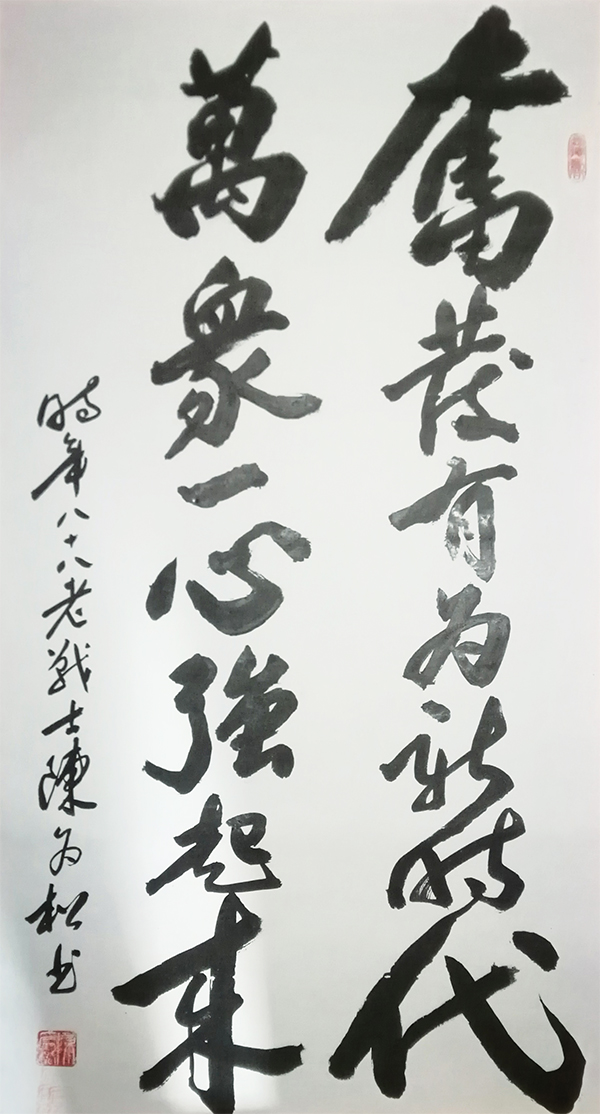 奮發有为新時代
萬衆一心強起来
時年八十八老战士陳为松书